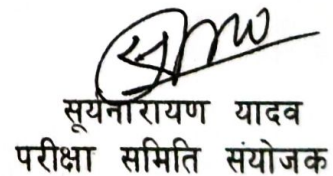 सूर्यनारायण यादव
परीक्षा समिति संयोजक